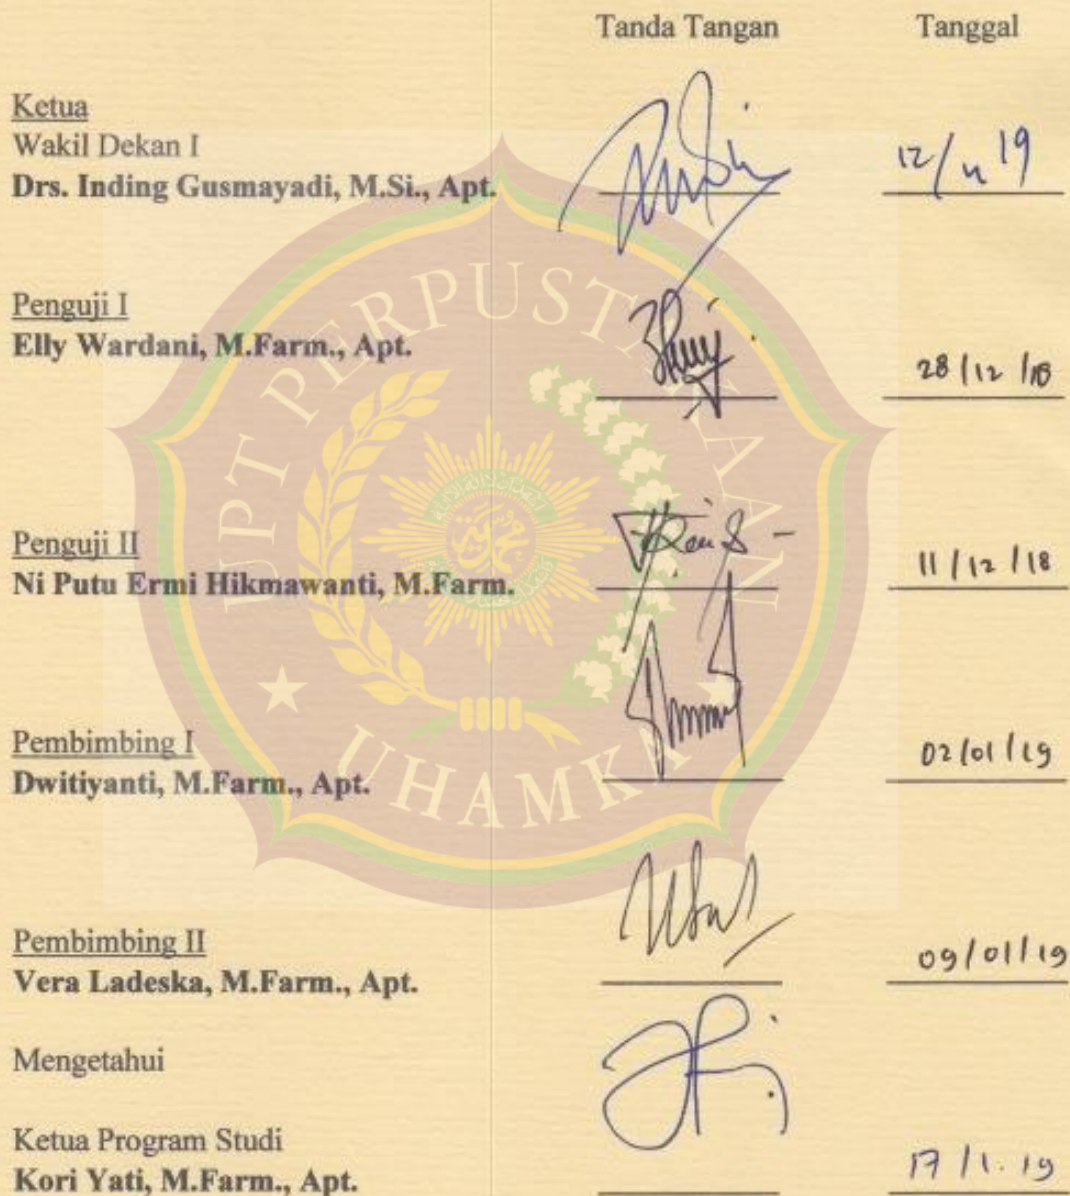 Tanda Tangan Tanggal
Ketua
Wakil Dekan I
Drs. Inding Gusmayadi, M.Si., Apt. 12/4 19
Penguji I
Elly Wardani, M.Farm., Apt. 28/12/18
Penguji II
Ni Putu Ermi Hikmawanti, M.Farm. 11/12/18
Pembimbing I
Dwitiyanti, M.Farm., Apt. 02/01/19
Pembimbing II
Vera Ladeska, M.Farm., Apt. 09/01/19
Mengetahui
Ketua Program Studi
Kori Yati, M.Farm., Apt. 17/1.19
UPT PERPUSTAKAAN
UHAMKA